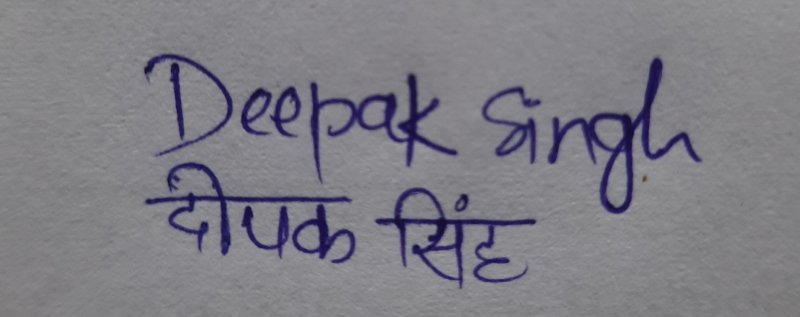 Deepak Singh
दीपक सिंह